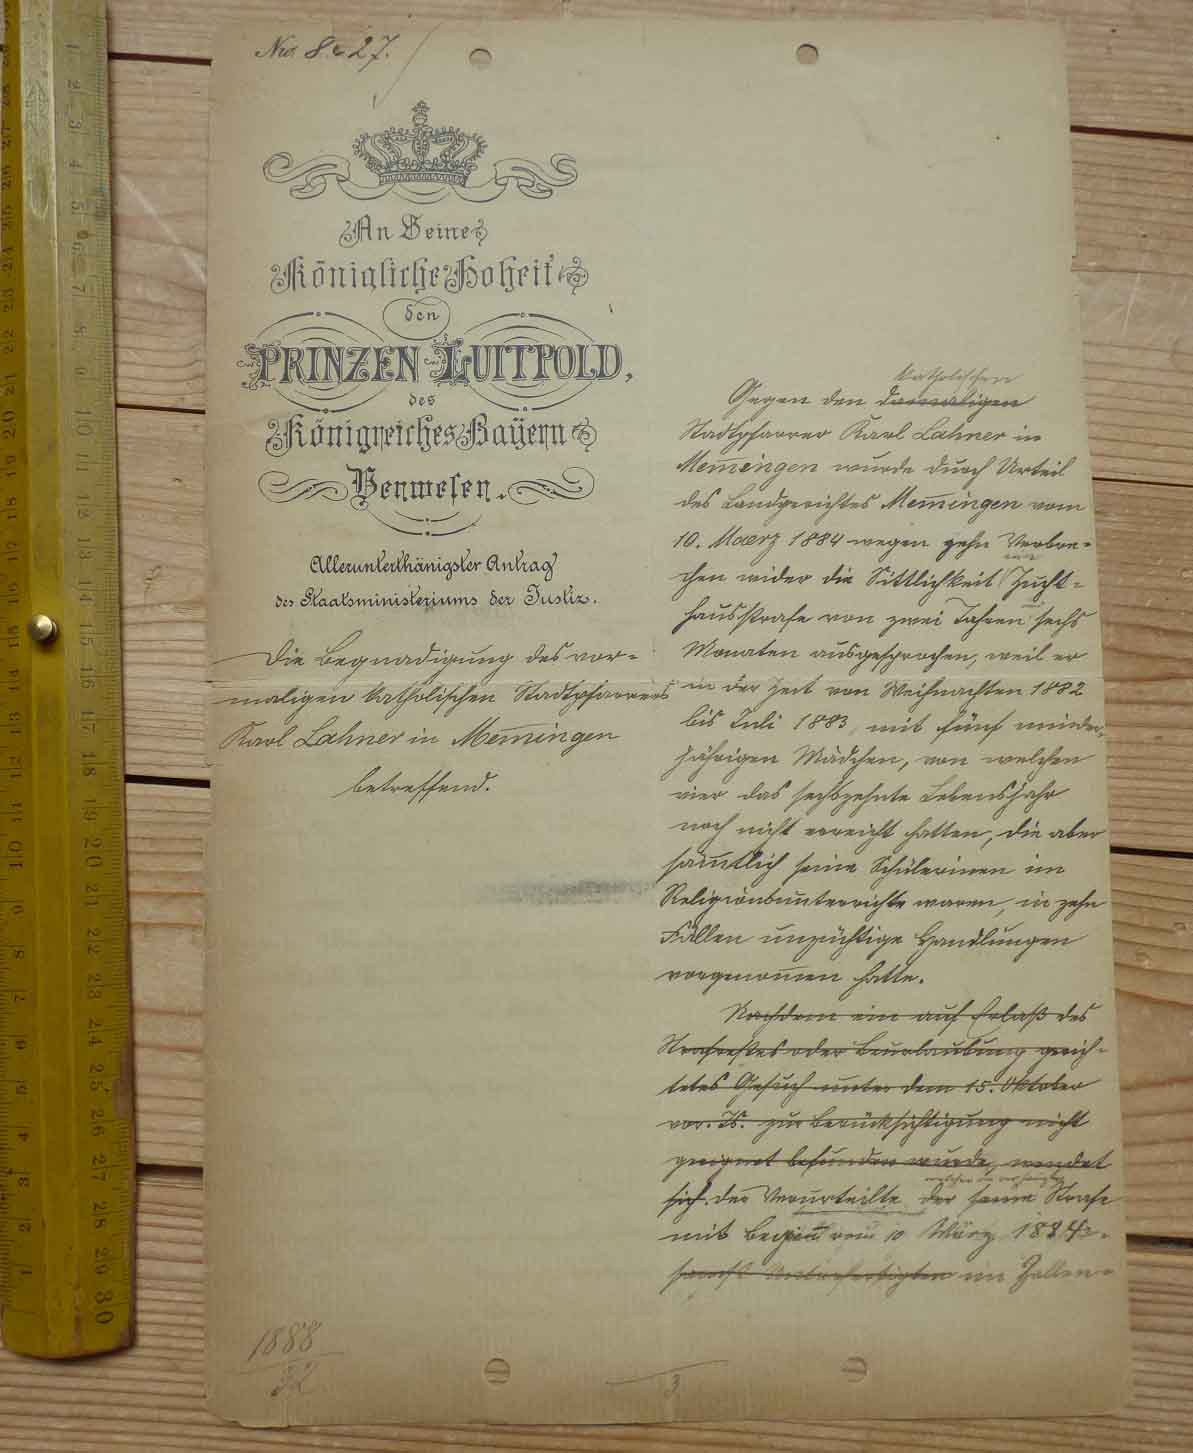 Nro. 8 27.
An Seine
Königliche Hoheit
den
PRINZEN LUITPOLD,
des
Königreiches Bayern
Verweser.
Allerunterthänigster Antrag
des Staatsministeriums der Justiz.
Die Begnadigung des vor-
maligen katholischen Stadtpfarrers
Karl Lahner in Memingen
betreffend.
katholischen
Gegen den damaligen
Stadtpfarrer Karl Lahner in
Memingen wurde durch Urteil
des Landgerichtes Memingen vom
10. Maerz 1884 wegen zehn Verbre-
chen wider die Sittlichkeit Zucht-
hausstrafe von zwei Jahren sechs
Monaten ausgesprochen, weil er
in der Zeit von Weihnachten 1882
bis Juli 1883, mit fünf minder-
jährigen Mädchen, von welchen
vier das sechszehnte Lebensjahr
noch nicht erreicht hatten, die aber
sämtlich seine Schülerinen im
Religionsunterrichte waren, in zehn
Fällen unzüchtige Handlungen
vorgenomen hatte.
Nachdem ein auf Erlaß des
Strafrestes oder Beurlaubung gerich-
tetes Gesuch unter dem 15. Oktober
vor. Js. zur Berücksichtigung nicht
geeignet befunden wurde, wendet
sich der Verurteilte der seine Strafe
mit Begin vom 10 März 1884
im Zellen-
1888
32
3